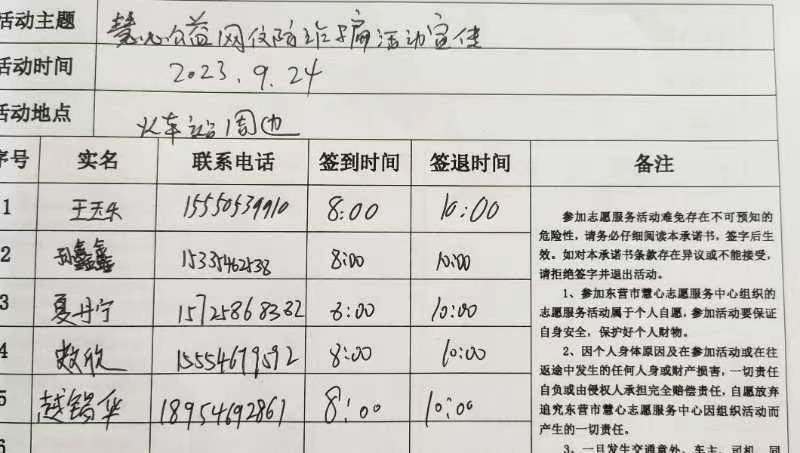 活动主题 慧心公益网仗防诈骗活动宣传
活动时间 2023.9.24
活动地点 火车站周边
序号 实名 联系电话 签到时间 签退时间 备注
1 15550539910 8:00 10:00
2 孙鑫鑫 15335462538 8:00 10:00
3 夏丹宁 15725868382 8:00 10:00
4 15554679592 8:00 10:00
5 赵锡华 18954692861 8:00 10:00
6
参加志愿服务活动难免存在不可预知的
危险性，请务必仔细阅读本承诺书，签字后生
效。如对本承诺书条款存在异议或不能接受，
请拒绝签字并退出活动。
1、参加东营市慧心志愿服务中心组织的
志愿服务活动属于个人自愿，参加活动要保证
自身安全，保护好个人财物。
2、因个人身体原因及在参加活动或在往
返途中发生的任何人身或财产损害，一切责任
自负或由侵权人承担完全赔偿责任，自愿放弃
追究东营市慧心志愿服务中心因组织活动而
产生的一切责任。
3、一旦发生交通意外，车主、司机、同